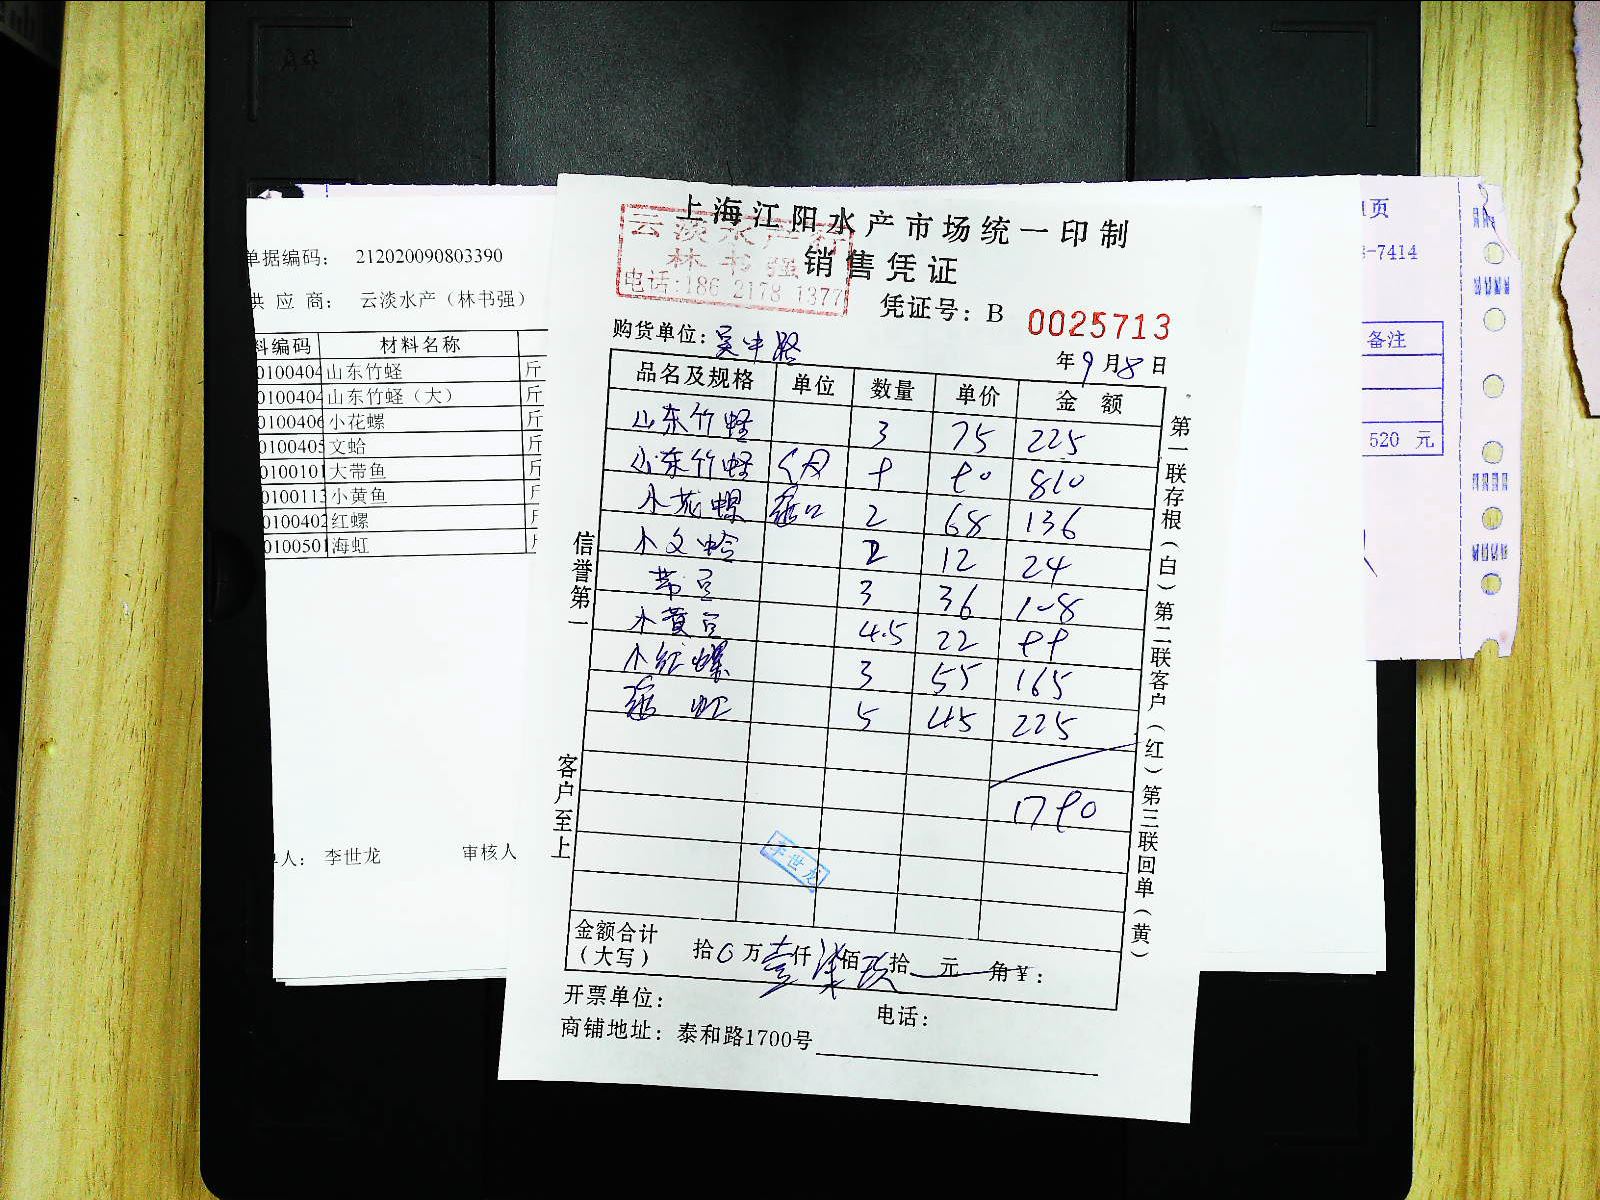 上海江阳水产市场统一印制
销售凭证
云淡水产行
林书强
电话:186 2178 1377
凭证号: B 0025713
购货单位: 吴中路
年9月8日
品名及规格 单位 数量 单价 金额
山东竹蛏 3 75 225
山东竹蛏 (大) 9 90 810
小花螺 2 68 136
小文蛤 2 12 24
带豆 3 36 108
小黄豆 4.5 22 99
小红螺 3 55 165
海虹 5 45 225
1790
李世龙
金额合计
(大写) 拾0万壹仟柒佰玖拾 元 角¥:
开票单位: 电话:
商铺地址: 泰和路1700号
信誉第一
客户至上
第一联存根(白)第二联客户(红)第三联回单(黄)
单据编码: 212020090803390
供应商: 云淡水产(林书强)
料编码 材料名称
0100404 山东竹蛏 斤
0100404 山东竹蛏(大) 斤
0100406 小花螺 斤
0100405 文蛤 斤
0100101 大带鱼 斤
0100113 小黄鱼 斤
0100402 红螺 斤
0100501 海虹
单人: 李世龙 审核人
页
-7414
备注
520 元